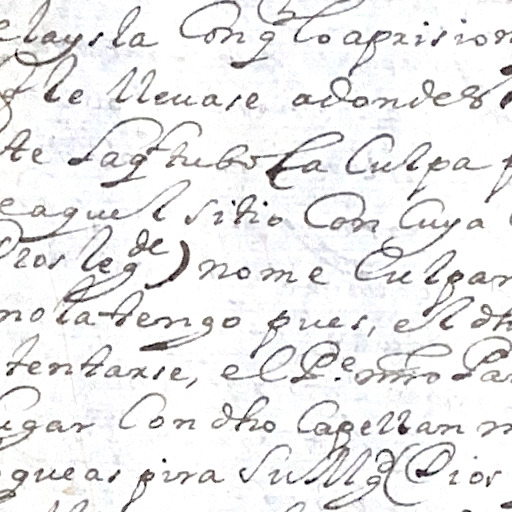 elaysla Con q̃ lo aprision
q̃ le lleuase adonde
te la q̃ tubo la Culpa p
e aquel sitio Con Cuya
Dios le gde) no me Culpan
no la tengo pues, el dho
tentarse, el Pe. mro Pa
ugar Con dho Capellan m
que aspira Su Mgd (Dios